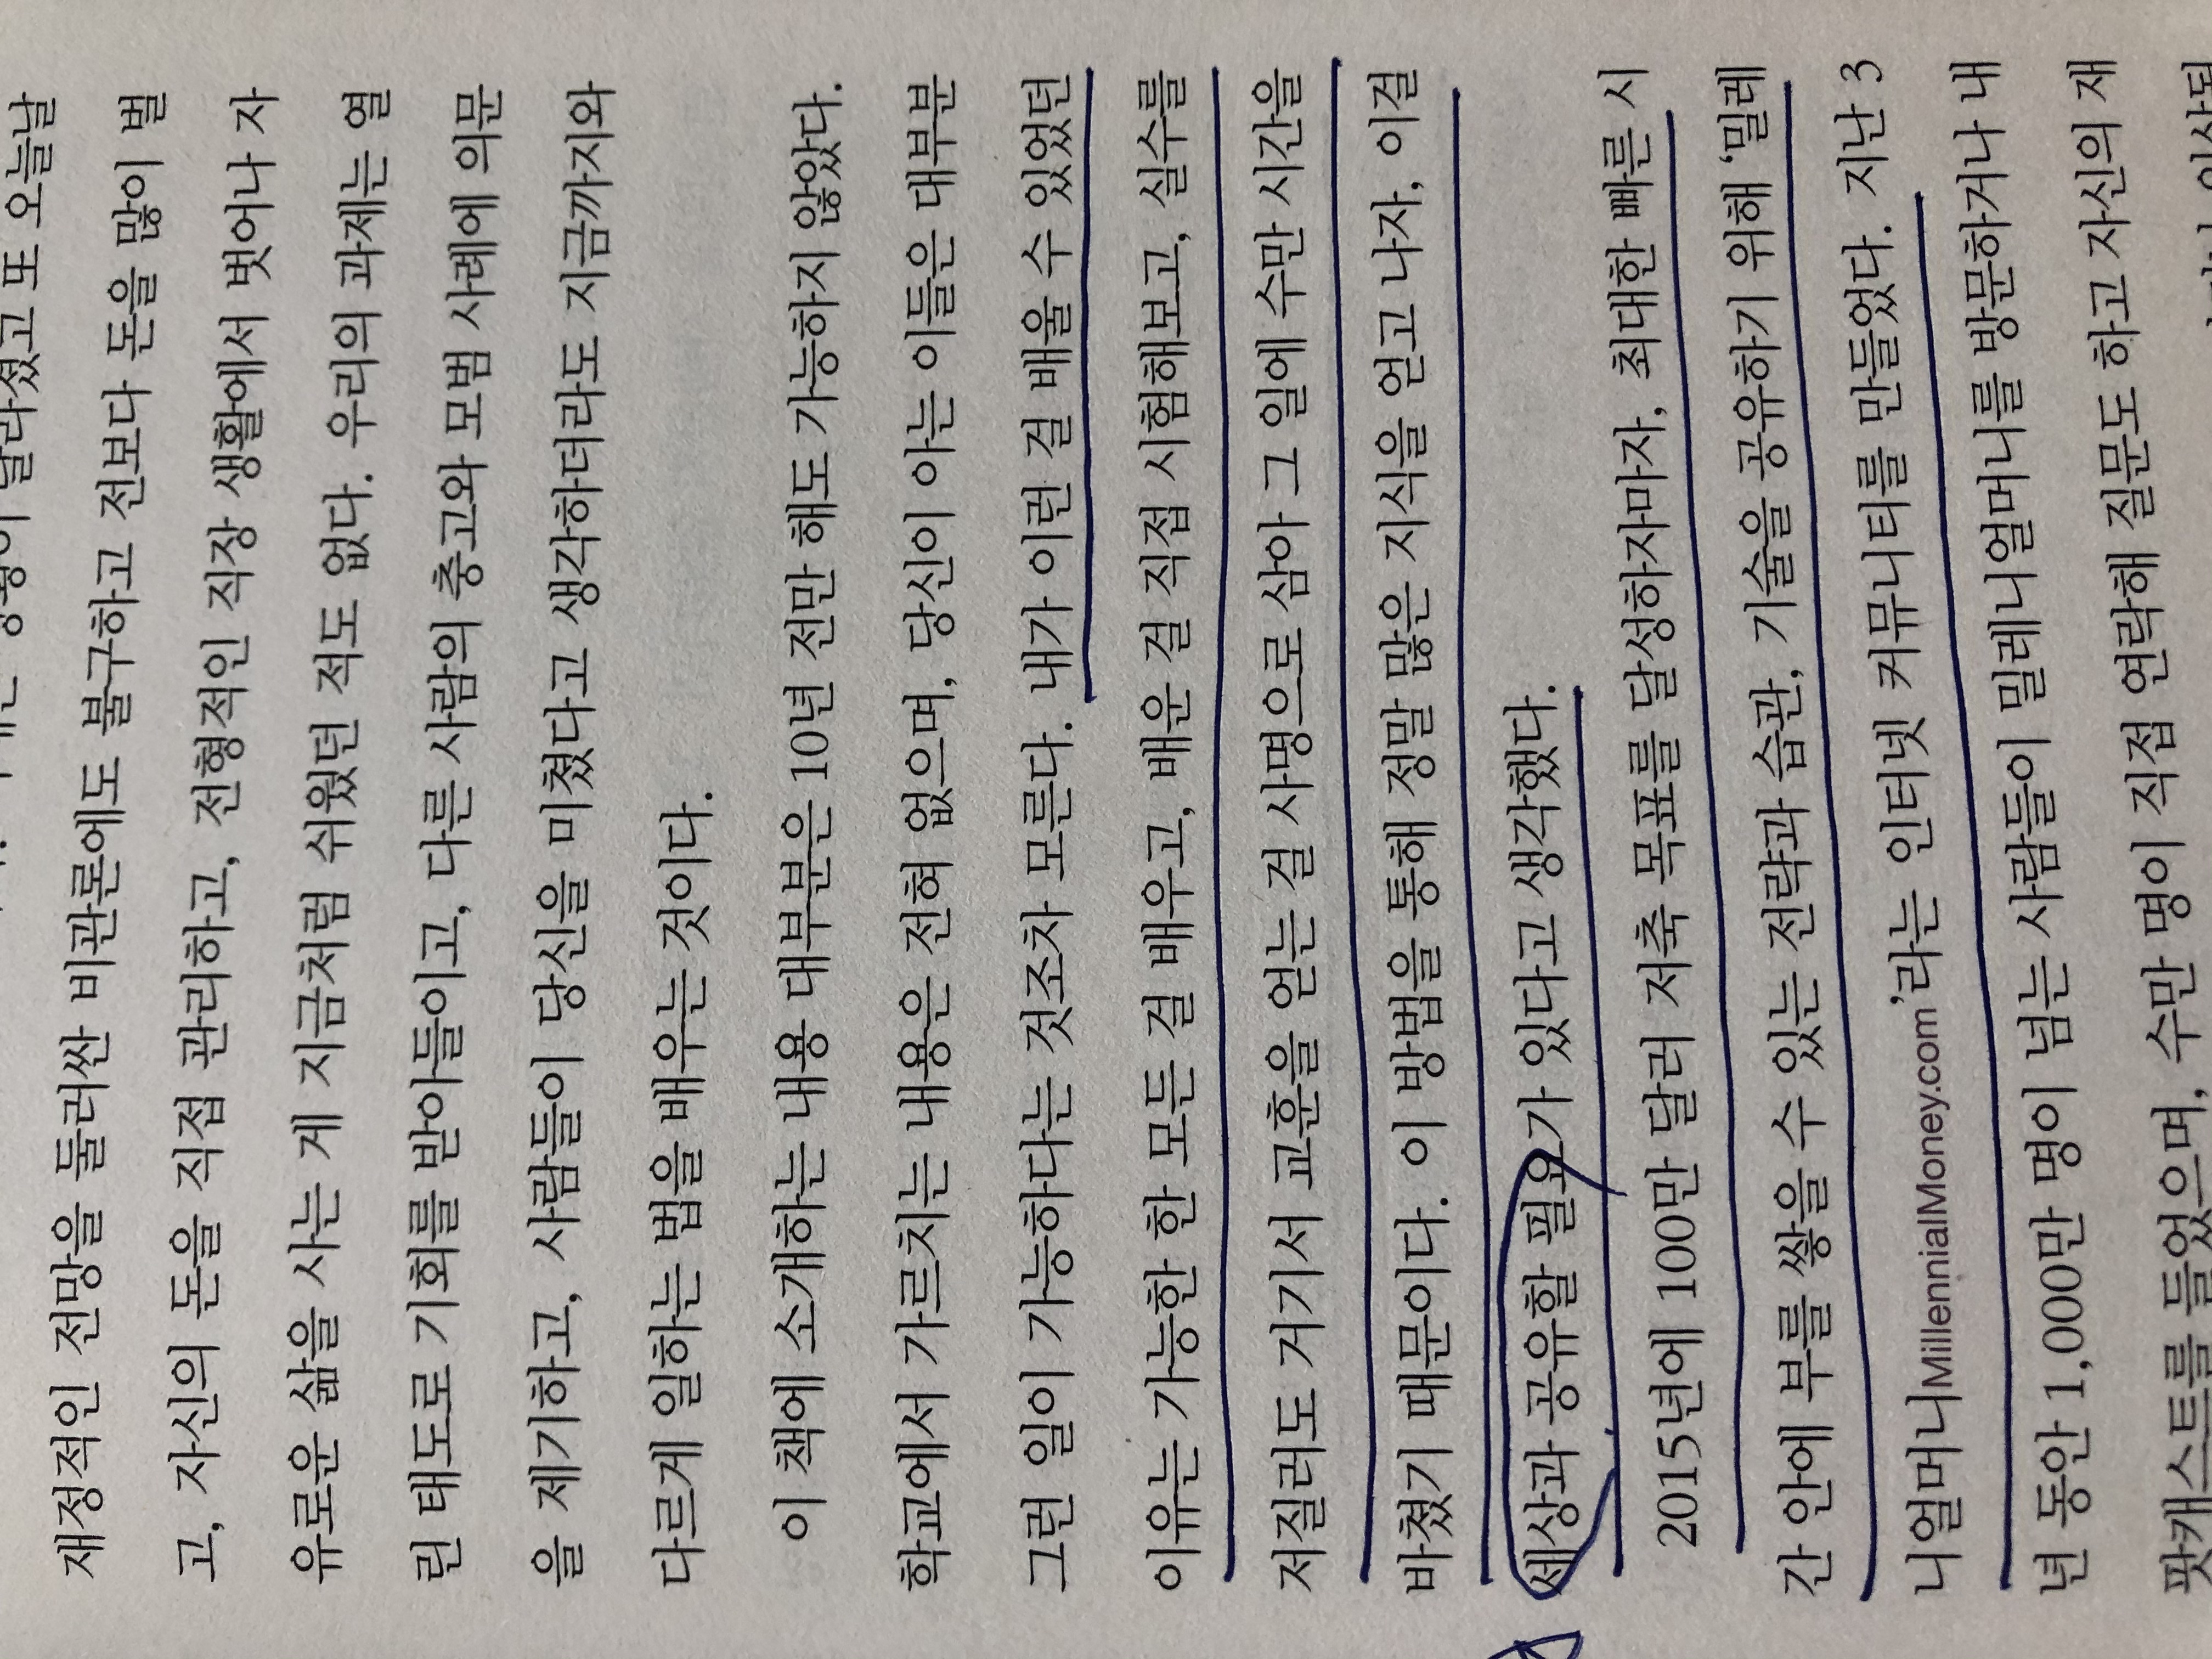 달라졌고 또 오늘날
재정적인 전망을 둘러싼 비관론에도 불구하고 전보다 돈을 많이 벌
고, 자신의 돈을 직접 관리하고, 전형적인 직장 생활에서 벗어나 자
유로운 삶을 사는 게 지금처럼 쉬웠던 적도 없다. 우리의 과제는 열
린 태도로 기회를 받아들이고, 다른 사람의 충고와 모범 사례에 의문
을 제기하고, 사람들이 당신을 미쳤다고 생각하더라도 지금까지와
다르게 일하는 법을 배우는 것이다.
이 책에 소개하는 내용 대부분은 10년 전만 해도 가능하지 않았다.
학교에서 가르치는 내용은 전혀 없으며, 당신이 아는 이들은 대부분
그런 일이 가능하다는 것조차 모른다. 내가 이런 걸 배울 수 있었던
이유는 가능한 한 모든 걸 배우고, 배운 걸 직접 시험해보고, 실수를
저질러도 거기서 교훈을 얻는 걸 사명으로 삼아 그 일에 수만 시간을
바쳤기 때문이다. 이 방법을 통해 정말 많은 지식을 얻고 나자, 이걸
세상과 공유할 필요가 있다고 생각했다.
2015년에 100만 달러 저축 목표를 달성하자마자, 최대한 빠른 시
간 안에 부를 쌓을 수 있는 전략과 습관, 기술을 공유하기 위해 ‘밀레
니얼머니MillennialMoney.com’라는 인터넷 커뮤니티를 만들었다. 지난 3
년 동안 1,000만 명이 넘는 사람들이 밀레니얼머니를 방문하거나 내
팟캐스트를 들었으며, 수만 명이 직접 연락해 질문도 하고 자신의 재